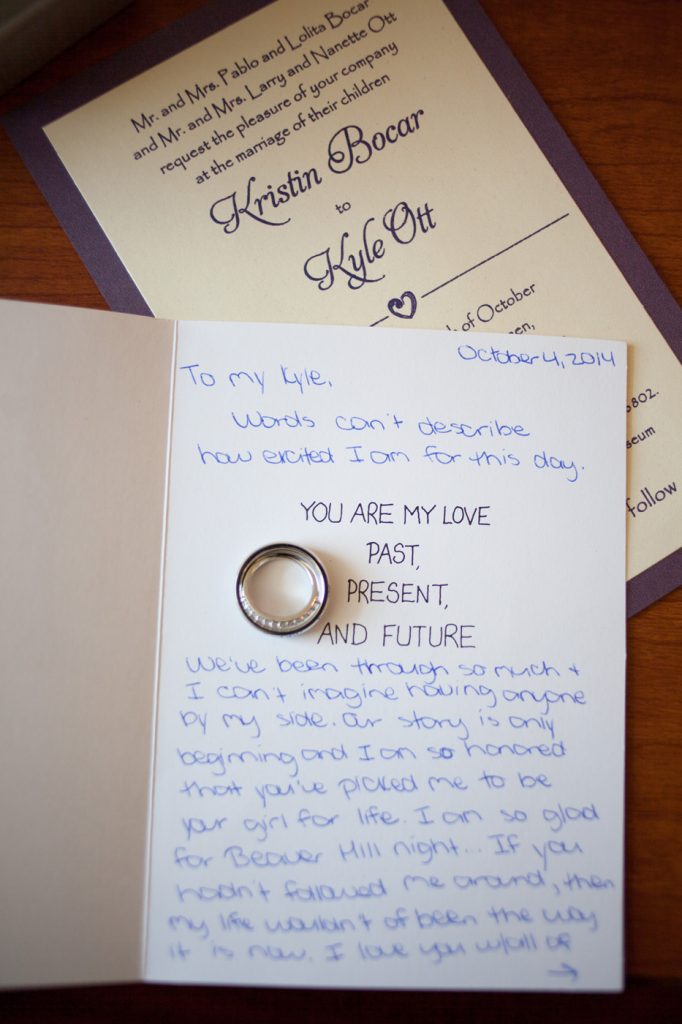 Mr. and Mrs. Pablo and Lolita Bocar
and Mr. and Mrs. Larry and Nanette Ott
request the pleasure of your company
at the marriage of their children
Kristin Bocar
to
Kyle Ott
of October
802.
follow
October 4, 2014
To my Kyle,
Words can't describe
how excited I am for this day.
YOU ARE MY LOVE
PAST,
PRESENT,
AND FUTURE
We've been through so much +
I can't imagine having anyone
by my side. Our story is only
beginning and I am so honored
that you've picked me to be
your girl for life. I am so glad
for Beaver Hill night... If you
hadn't followed me around, then
my life wouldn't of been the way
it is now. I love you w/all of
→